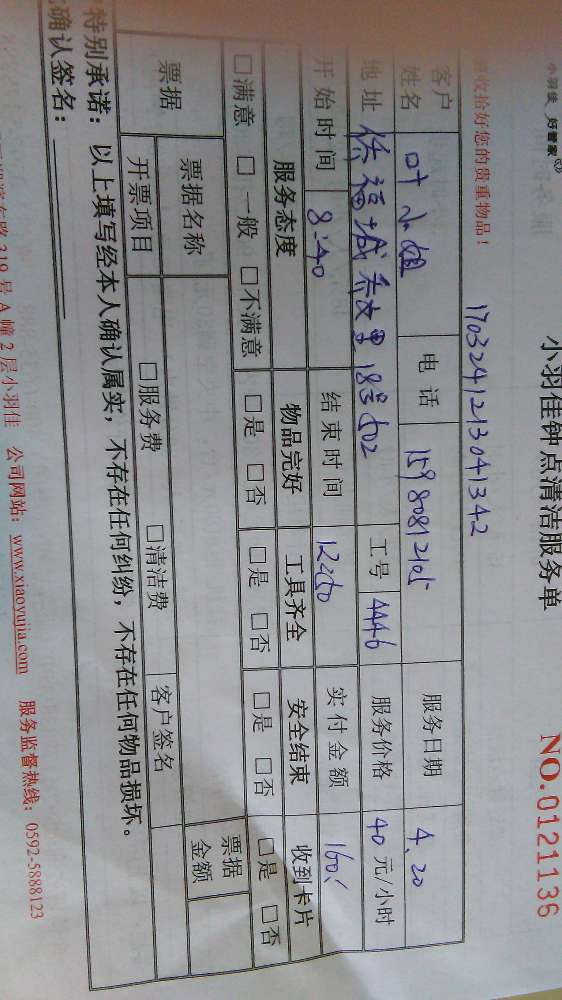 小羽佳 好管家
小羽佳钟点清洁服务单
NO.0121136
收拾好您的贵重物品！
1703241213041342
客户姓名 叶小姐 电话 服务日期 4.20
地址 18号502 工号 4446 服务价格 40 元/小时
开始时间 8:40 结束时间 12:40 实付金额 160
服务态度 物品完好 工具齐全 安全结束 收到卡片
□满意 □一般 □不满意 □是 □否 □是 □否 □是 □否 □是 □否
票据 票据名称 票据金额
开票项目 □服务费 □清洁费 客户签名
特别承诺：以上填写经本人确认属实，不存在任何纠纷，不存在任何物品损坏。
确认签名：
319号A幢2层小羽佳 公司网站：www.xiaoyujia.com 服务监督热线：0592-5888123